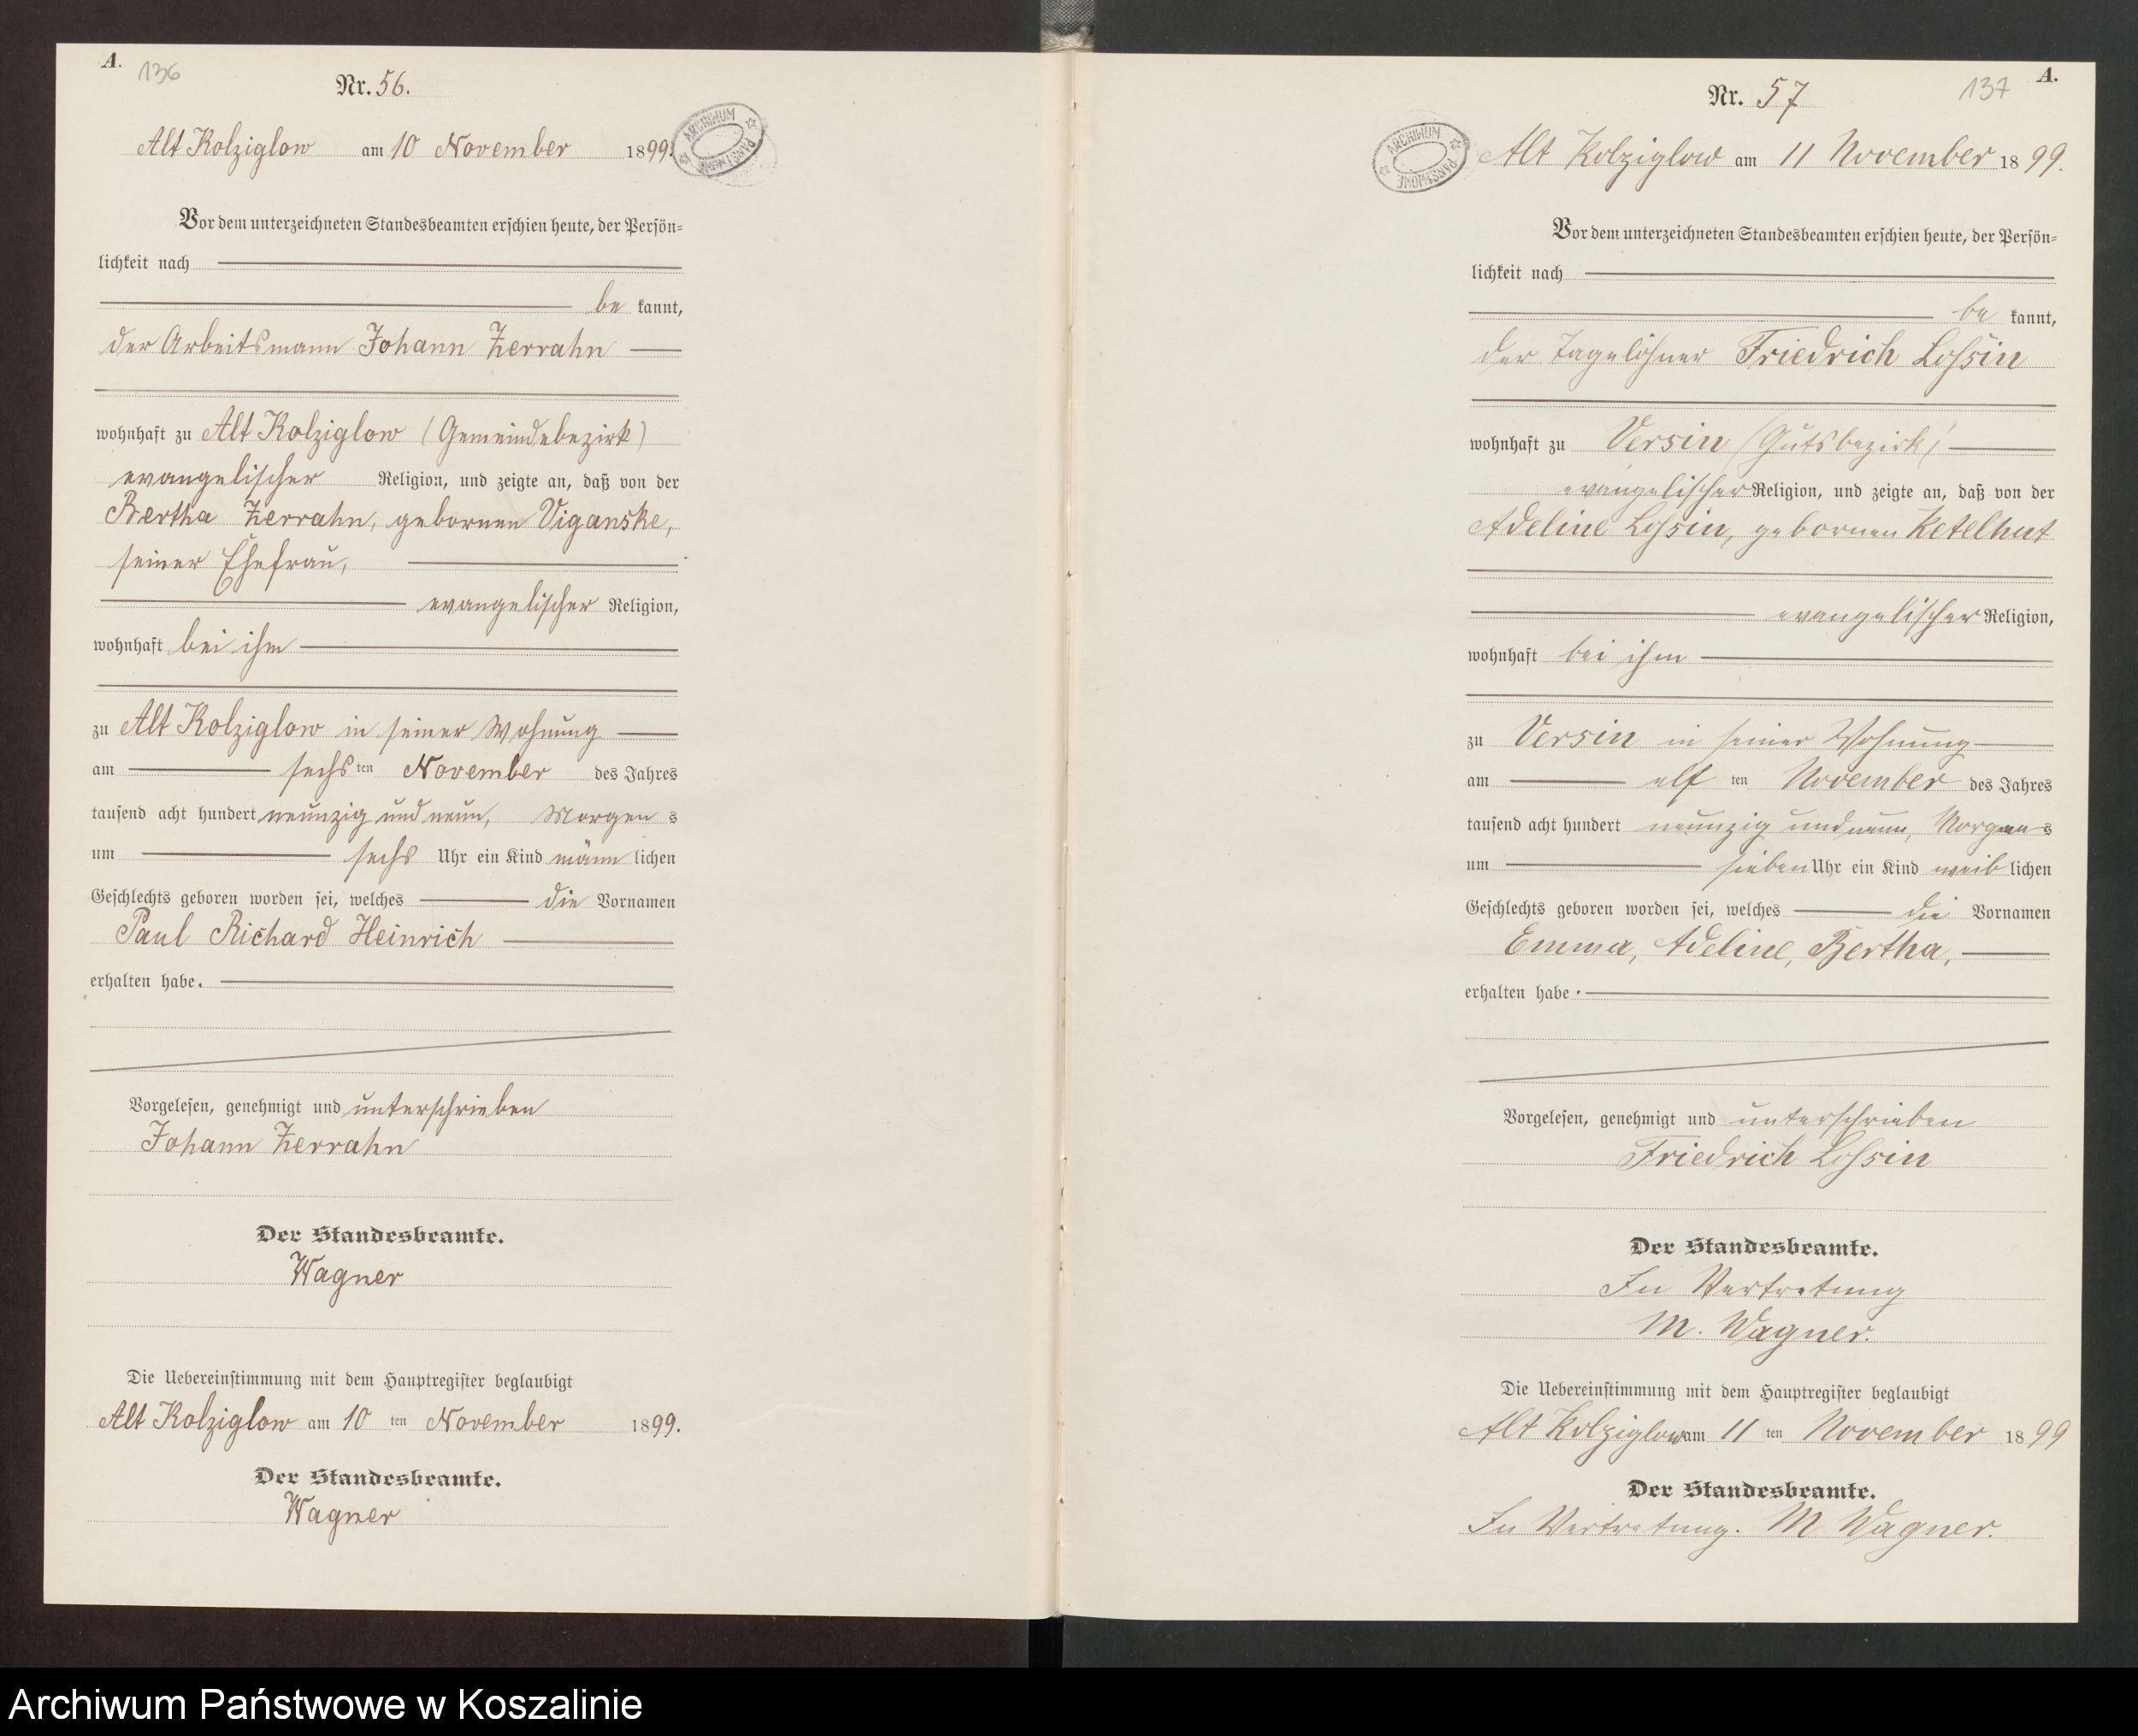 A.
136
Nr. 56.
Alt Kolziglow am 10 November 1899.
ARCHIWUM PAŃSTWOWE
Vor dem unterzeichneten Standesbeamten erschien heute, der Persön=
lichkeit nach
be kannt,
der Arbeitsmann Johann Zerrahn
wohnhaft zu Alt Kolziglow (Gemeindebezirk)
evangelischer Religion, und zeigte an, daß von der
Bertha Zerrahn, gebornen Viganske,
seiner Ehefrau,
evangelischer Religion,
wohnhaft bei ihm
zu Alt Kolziglow in seiner Wohnung
am sechs ten November des Jahres
tausend acht hundert neunzig und neun, Morgen s
um sechs Uhr ein Kind männ lichen
Geschlechts geboren worden sei, welches die Vornamen
Paul Richard Heinrich
erhalten habe.
Vorgelesen, genehmigt und unterschrieben
Johann Zerrahn
Der Standesbeamte.
Wagner
Die Uebereinstimmung mit dem Hauptregister beglaubigt
Alt Kolziglow am 10 ten November 1899.
Der Standesbeamte.
Wagner
A.
137
Nr. 57
ARCHIWUM PAŃSTWOWE
Alt Kolziglow am 11 November 1899.
Vor dem unterzeichneten Standesbeamten erschien heute, der Persön=
lichkeit nach
be kannt,
der Tagelöhner Friedrich Lossin
wohnhaft zu Versin (Gutsbezirk)
evangelischer Religion, und zeigte an, daß von der
Adeline Lossin, gebornen Ketelhut
evangelischer Religion,
wohnhaft bei ihm
zu Versin in seiner Wohnung
am elf ten November des Jahres
tausend acht hundert neunzig und neun, Morgens
um sieben Uhr ein Kind weib lichen
Geschlechts geboren worden sei, welches die Vornamen
Emma, Adeline, Bertha,
erhalten habe.
Vorgelesen, genehmigt und unterschrieben
Friedrich Lossin
Der Standesbeamte.
In Vertretung
M. Wagner.
Die Uebereinstimmung mit dem Hauptregister beglaubigt
Alt Kolziglow am 11 ten November 1899
Der Standesbeamte.
In Vertretung. M Wagner.
Archiwum Państwowe w Koszalinie